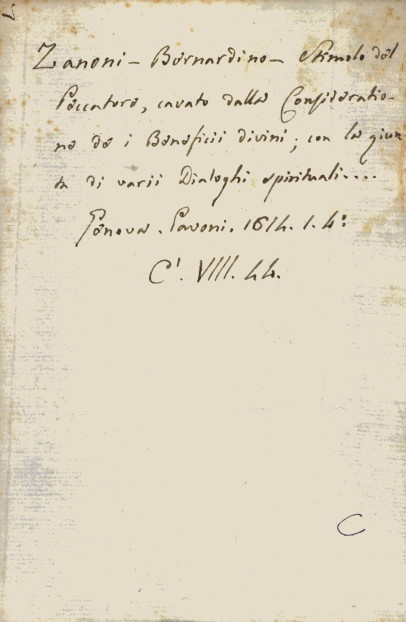 Zanoni - Bernardino - Stimolo del
Peccatore, cavato dalla Consideratio-
ne de i Beneficii divini; con la giun-
ta di varii Dialoghi spirituali....
Genova. Pavoni. 1614. 1. 4º
C'. VIII. 44.
C